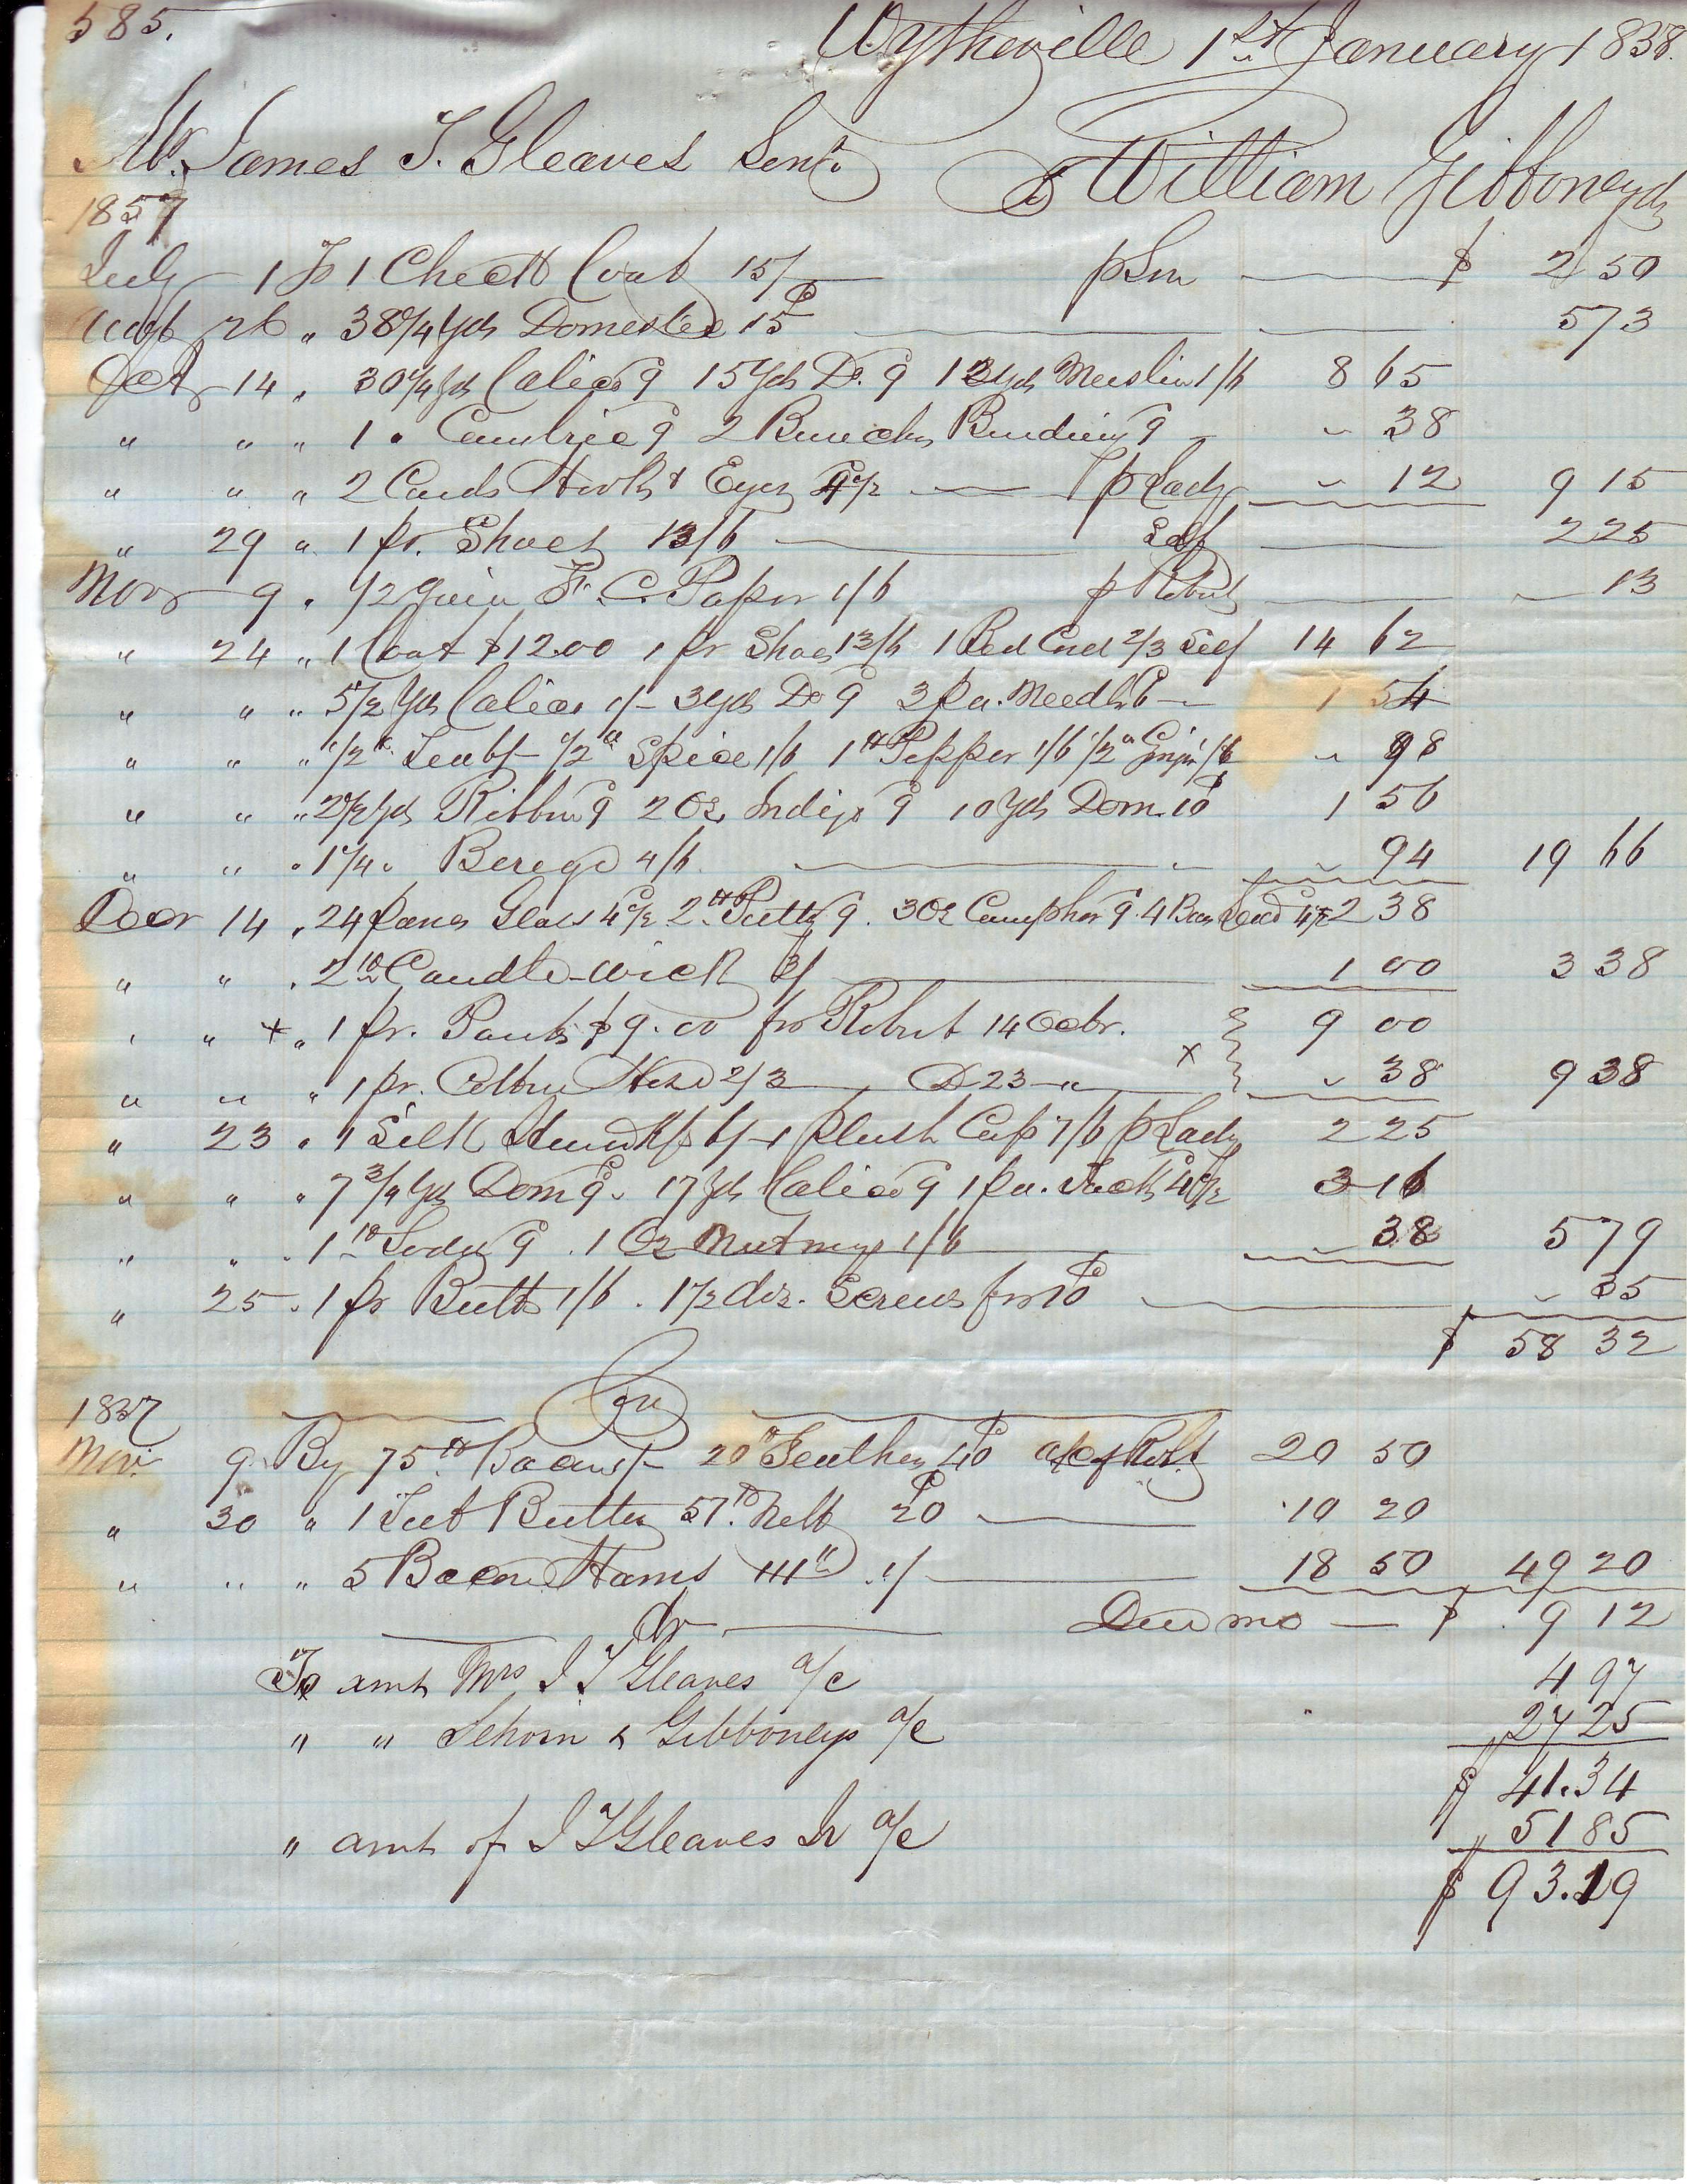 585.
Wytheville 1st January 1858.
Mr. James T. Gleaves Senr.
To William Gibboney Dr
1857
July 1 To 1 Check Coat 15/ p Son $ 2 50
Augt 26 " 38 1/4 Yds Domestic 15c 5 73
Octr 14 " 30 1/4 Yds Calico 9 15 Yds Do. 9 13 Yds Muslin 1/6 8 65
" " " 1 " Cambric 9 2 Bunches Binding 9 " 38
" " " 2 Cards Hooks & Eyes 4 1/2 p Lady " 12 9 15
" 29 " 1 pr. Shoes 13/6 Self 2 25
Novr 9 " 1/2 Quire F. C. Paper 1/6 p Robert 13
" 24 " 1 Coat $12.00 1 pr Shoes 13/6 1 Bed Cord 2/3 Self 14 62
" " " 5 1/2 Yds Calico 1/- 3 Yds Do 9 3 pa. Needles 6 1 54
" " " 1/2 " Tea 6/- 1/2 " Spice 1/6 1 " Pepper 1/6 1/2 " Ginger 1/6 " 98
" " " 2 1/2 Yds Ribbon 9 2 Oz Indigo 9 10 Yds Dom. 10c 1 56
" " " 1 1/4 " Berege 4/6 " 94 19 66
Decr 14 " 24 panes Glass 4 1/2 2 lb Putty 9 3 Oz Camphor 9 4 Bars Lead 4 1/2 2 38
" " " 2 lb Candle-wick 3/ 1 00 3 38
" " x " 1 pr. Pants $9.00 for Robert 14 Octbr. 9 00
" " " 1 pr. Cotton Hose 2/3 Do 23 " x " 38 9 38
" 23 " 1 Silk Handkf 6/- 1 plush Cap 7/6 p Lady 2 25
" " " 7 3/4 Yds Dom 9 17 Yds Calico 9 1 pa. Tacks 4 1/2 3 16
" " " 1 lb Soda 9 1 Oz Nutmegs 1/6 38 5 79
" 25 " 1 pr Butts 1/6 1 1/2 doz. Screws for 10c " 35
$ 58 32
Cr
1857
Nov. 9 By 75 lb Bacon 1/- 20 lb Feathers 40c a/c of Robt 20 50
" 30 " 1 Tub Butter 51 lb Nett 20c 10 20
" " " 5 Bacon Hams 111 lb 1/ 18 50 49 20
Due me $ 9 12
dr
To amt Mrs J T Gleaves a/c 4 97
" " Schorn & Gibboneys a/c 27 25
$ 41.34
" amt of J T Gleaves Jr a/c 51 85
$ 93.19